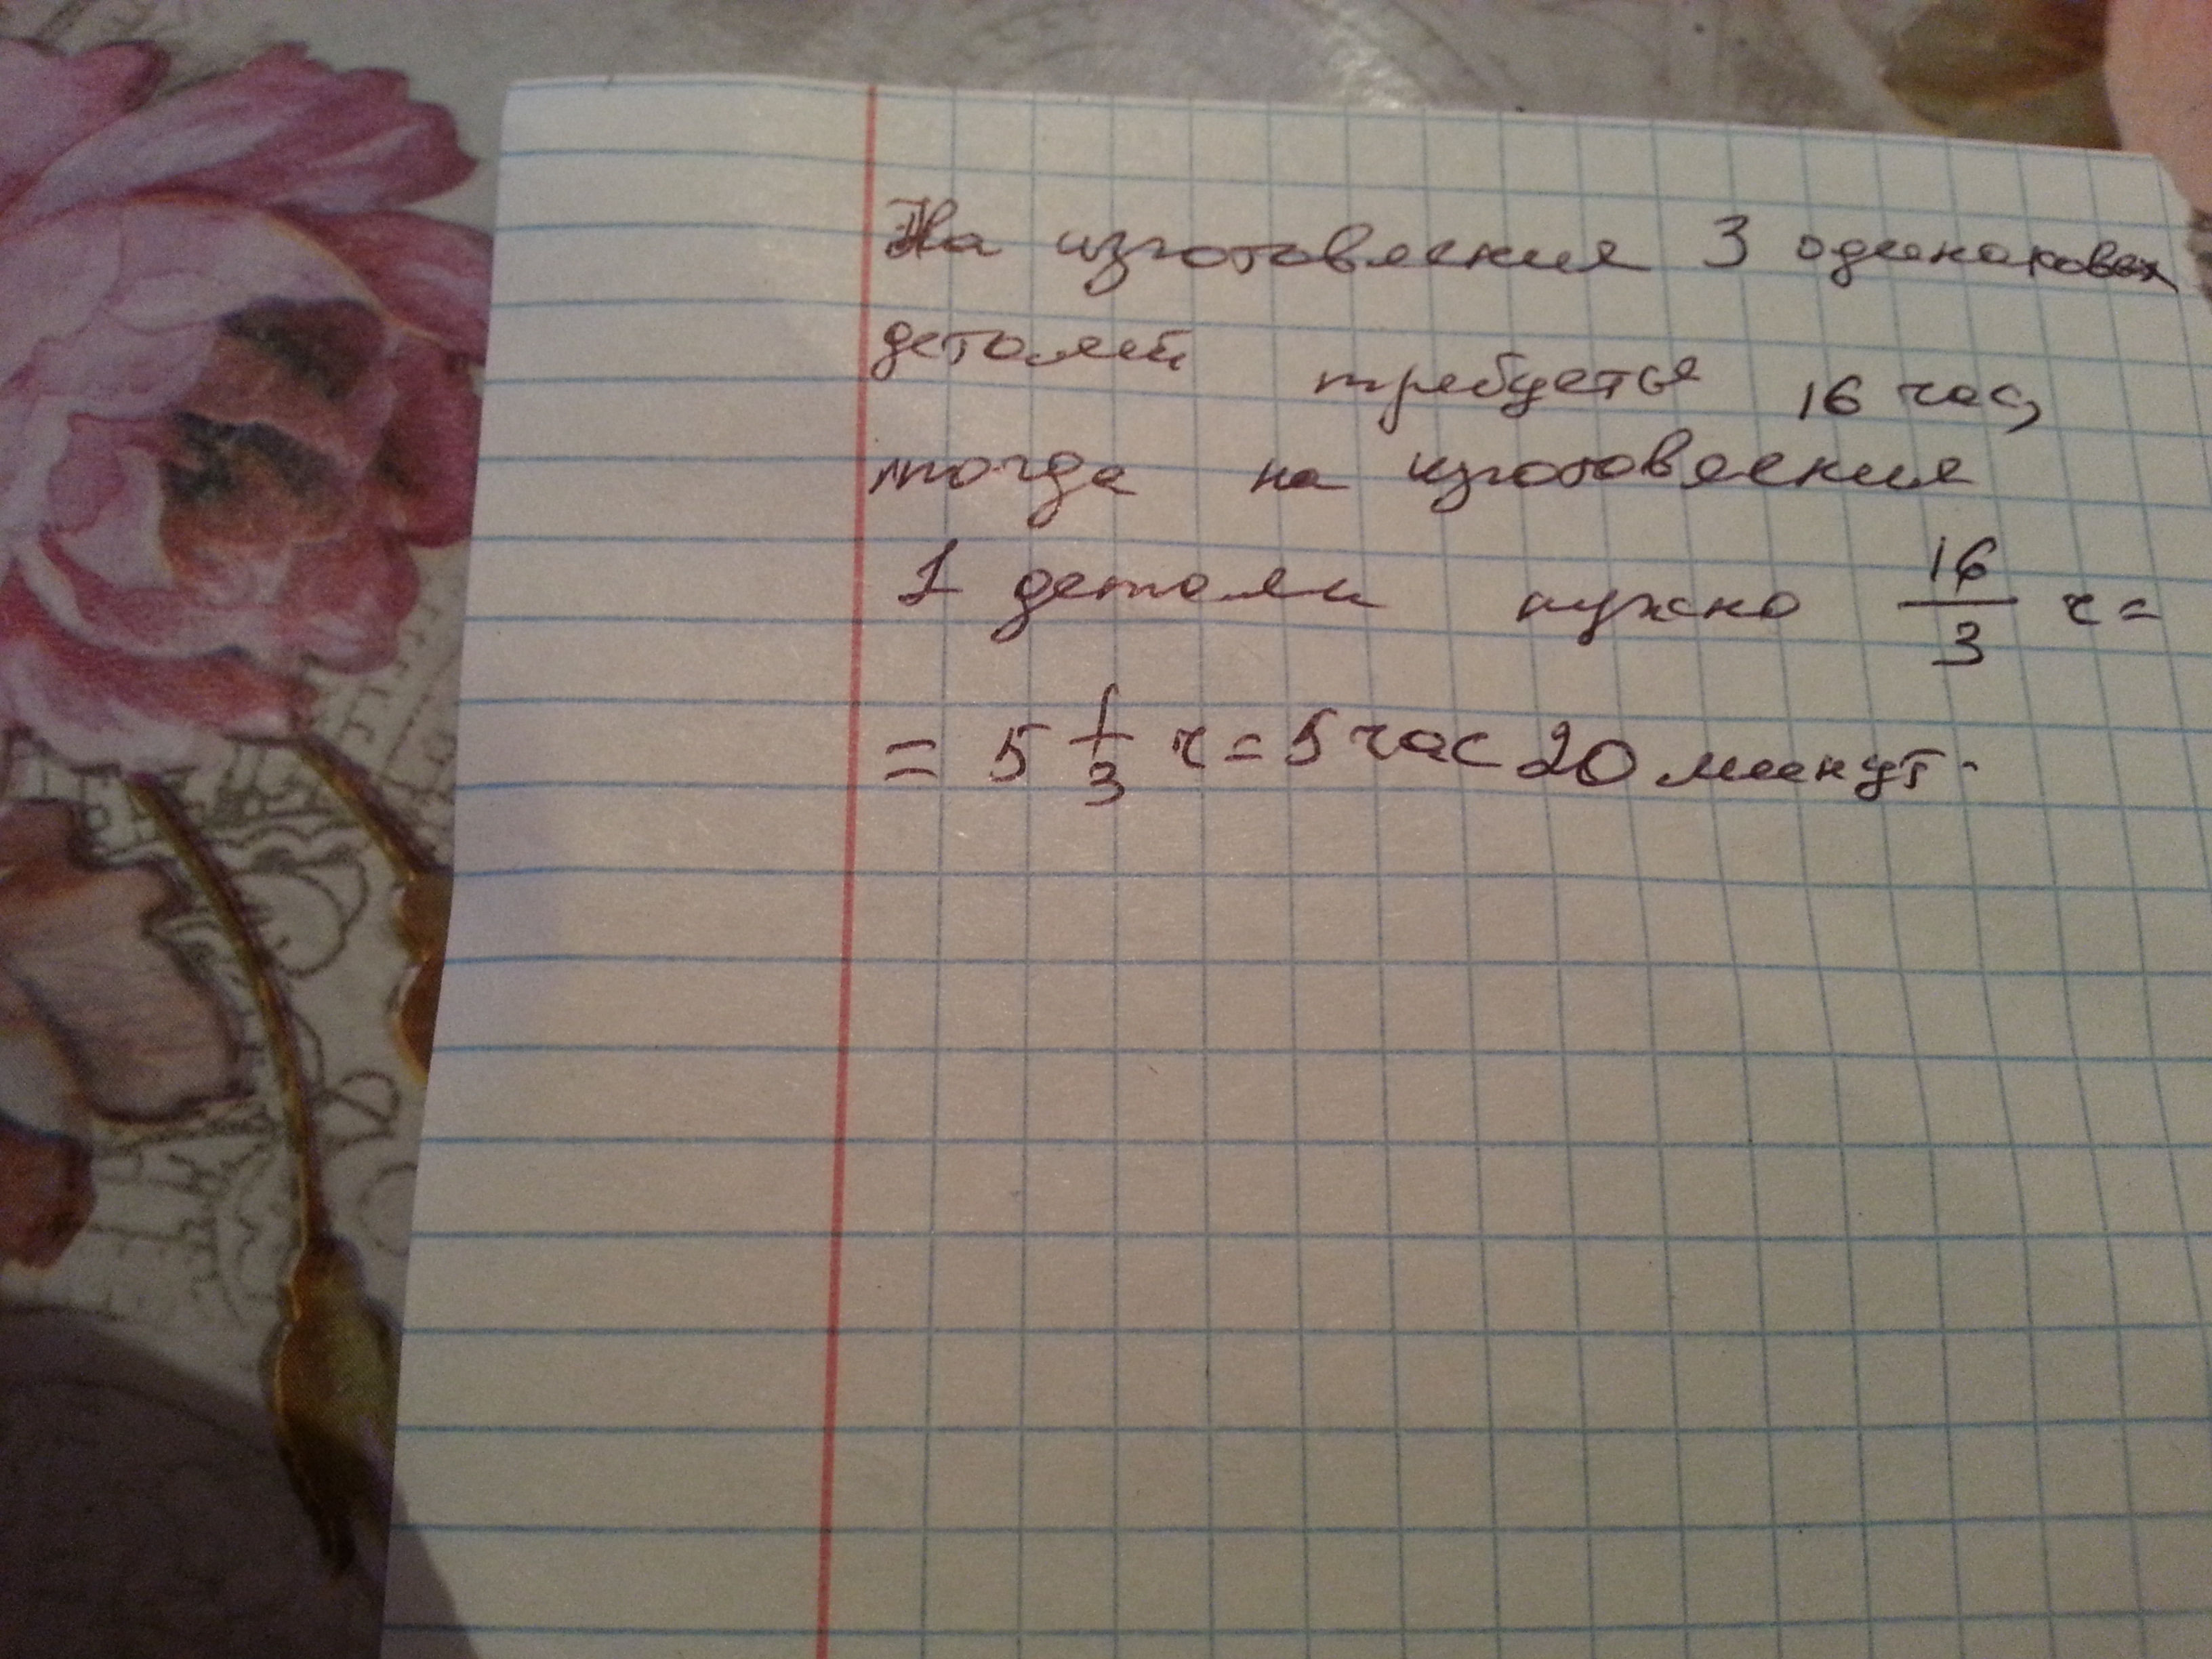 На изготовления 3 одинаковых
деталей требуеться 16 час,
тогда на изготовления
1 детали нужно 16/3 ч =
= 5 1/3 ч = 5 час 20 минут.